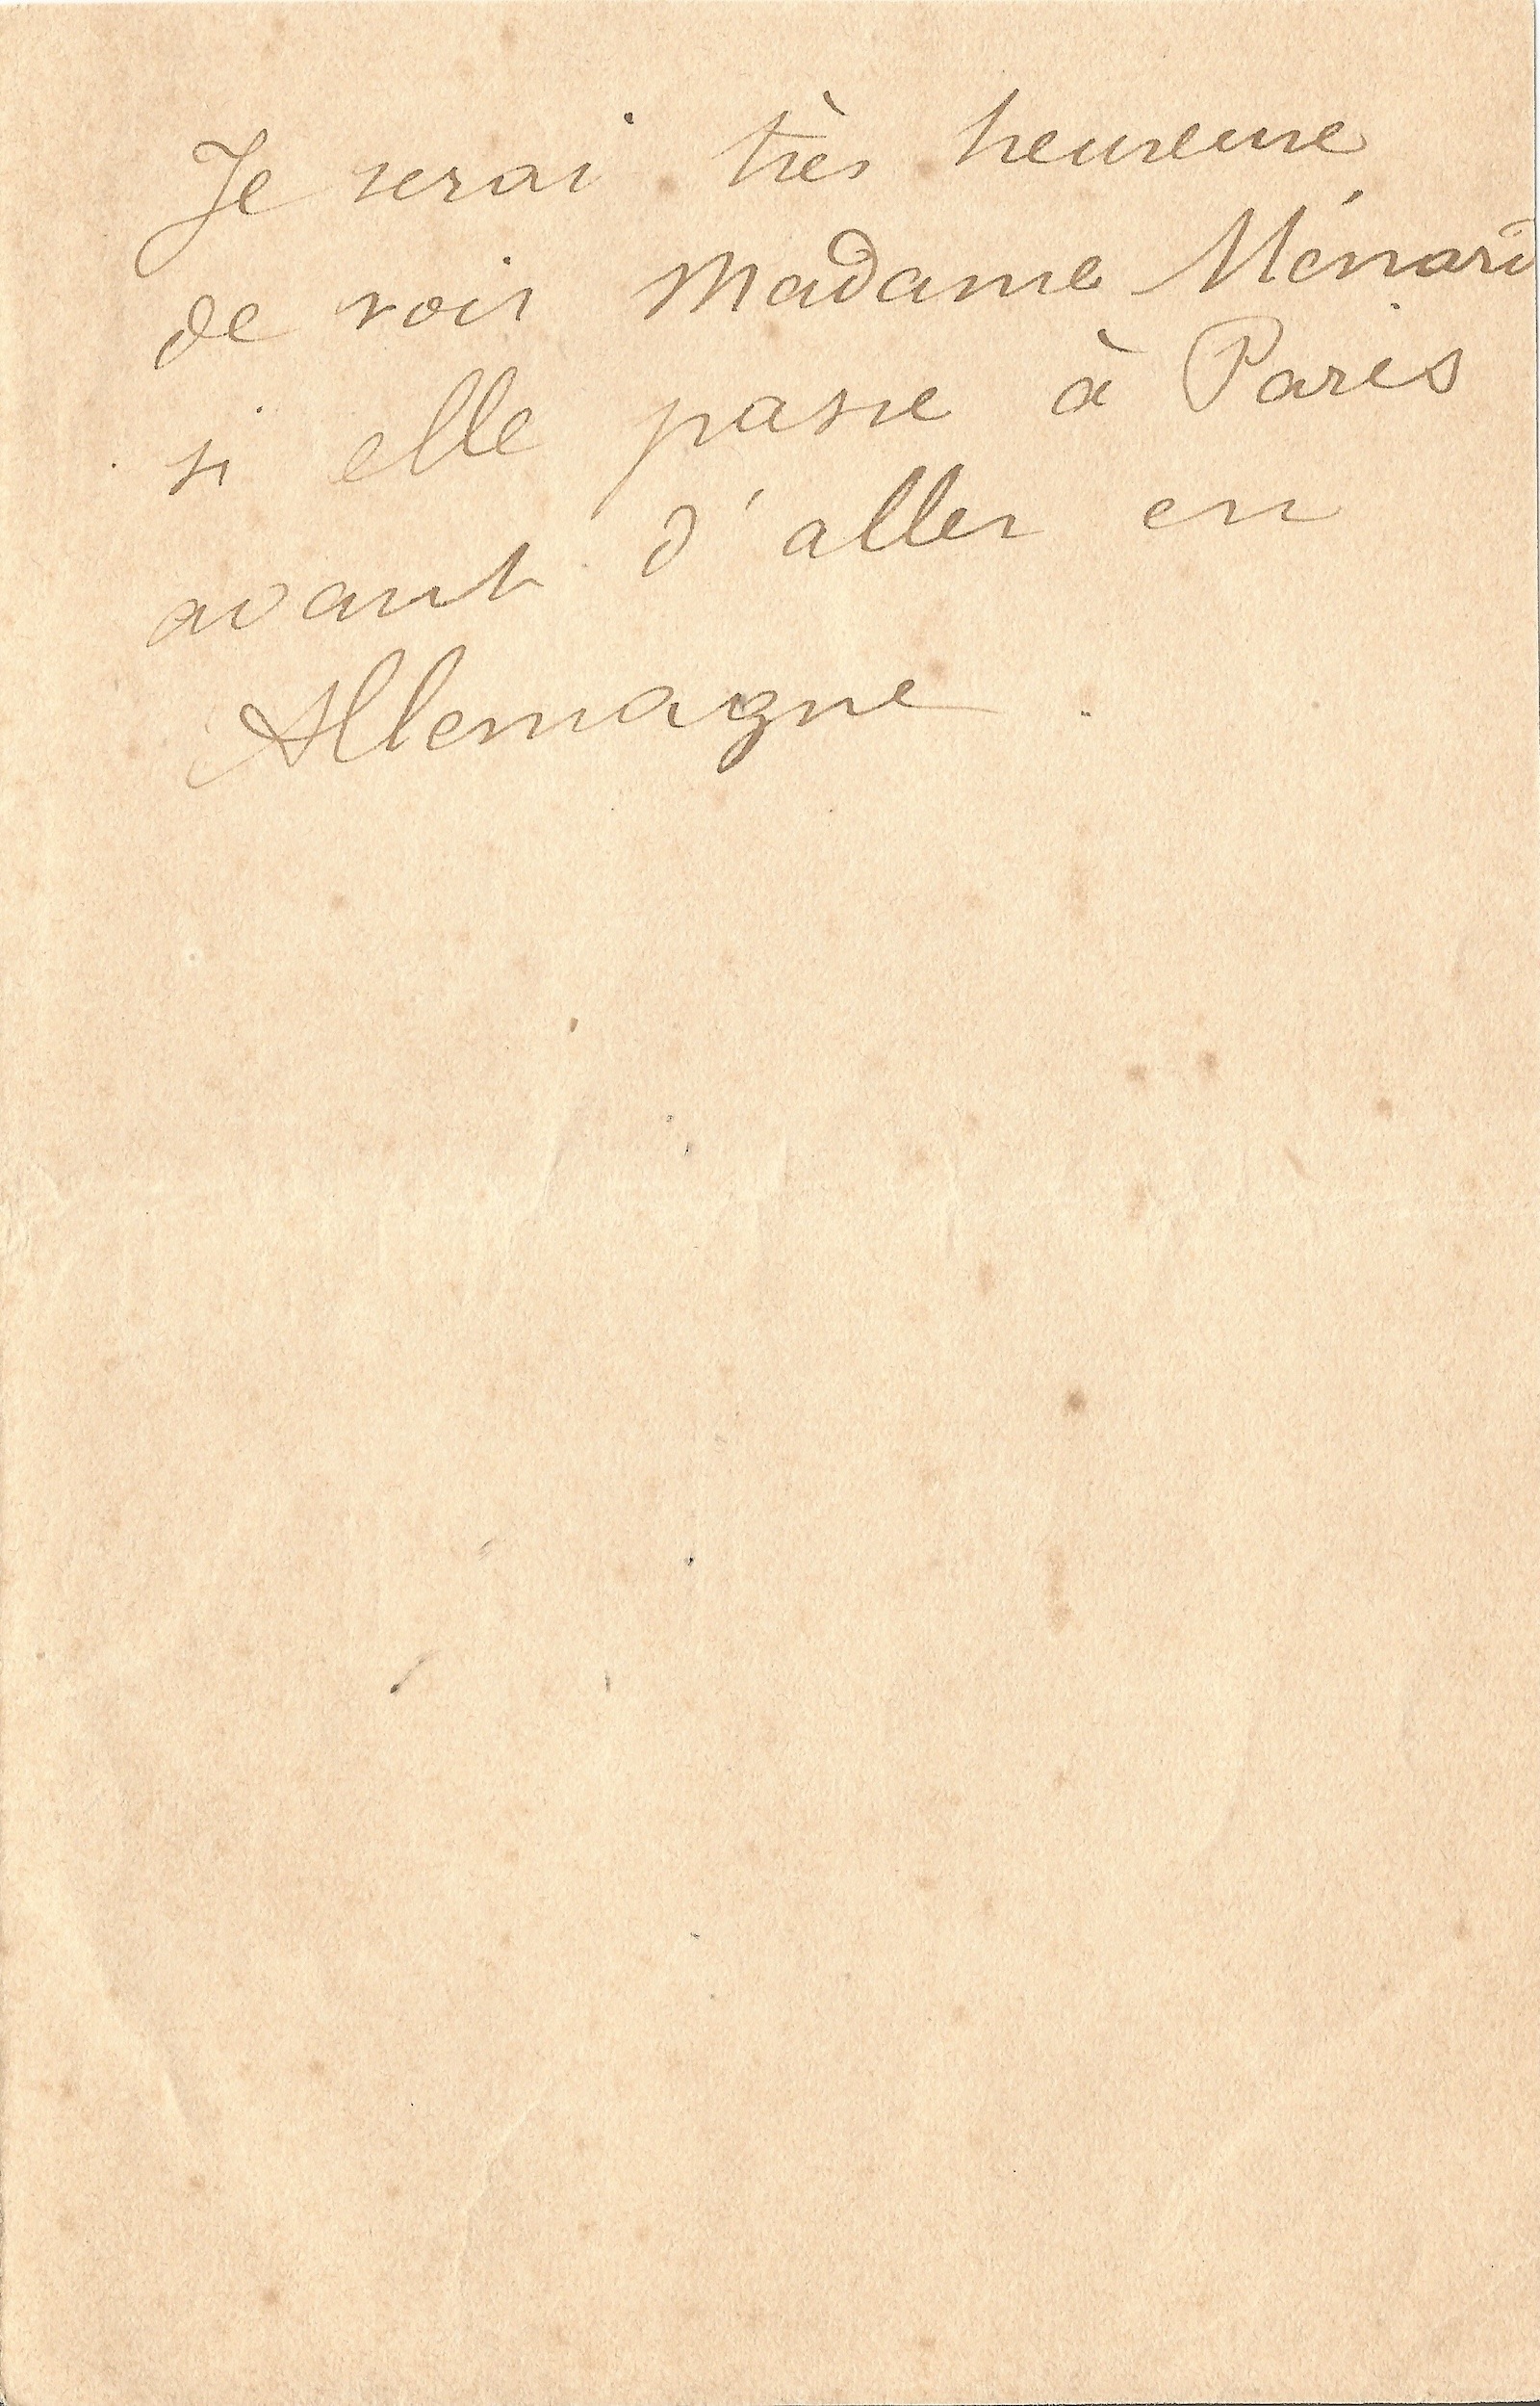 Je serai très heureuse
de voir Madame Ménard
si elle passe à Paris
avant d'aller en
Allemagne.